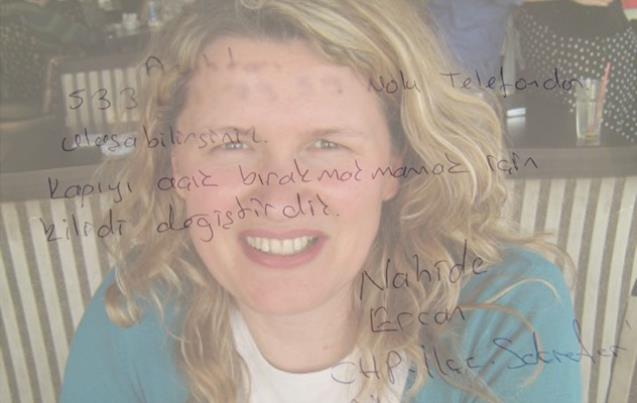 533 Nolu Telefondan
ulaşabilirsiniz.
Kapıyı açık bırakmamak için
kilidi değiştirdik.
Nahide
Ercan
CHP. İlçe. Sekreter